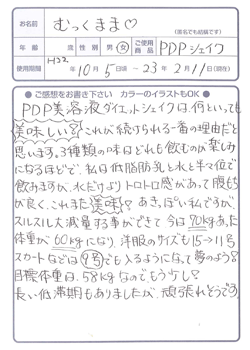 お名前 むっくまま♡
(匿名でも結構です)
年齢 歳 性別 男・女 ご使用商品 PDPシェイク
H22年10月5日頃〜23年2月11日(現在)
●ご感想をお書き下さい カラーのイラストもOK●
PDP美溶液ダイエットシェイクは、何といっても
美味しい!?これが続けられる一番の理由だと
思います。3種類の味はどれも飲むのが楽しみ
になるほどで、私は低脂肪乳と水と半々位で
飲みますが、水だけよりトロトロ感があって腹もち
が良く、これまた美味!?あきっぽい私ですが、
スルスル大減量する事ができて今は70kgあった
体重が60kgになり、洋服のサイズも15→11号
スカートなどは9号でも入るようになって夢のよう!?
目標体重は、58kgなのでもう少し?
長い低滞期もありましたが、頑張れそうです。